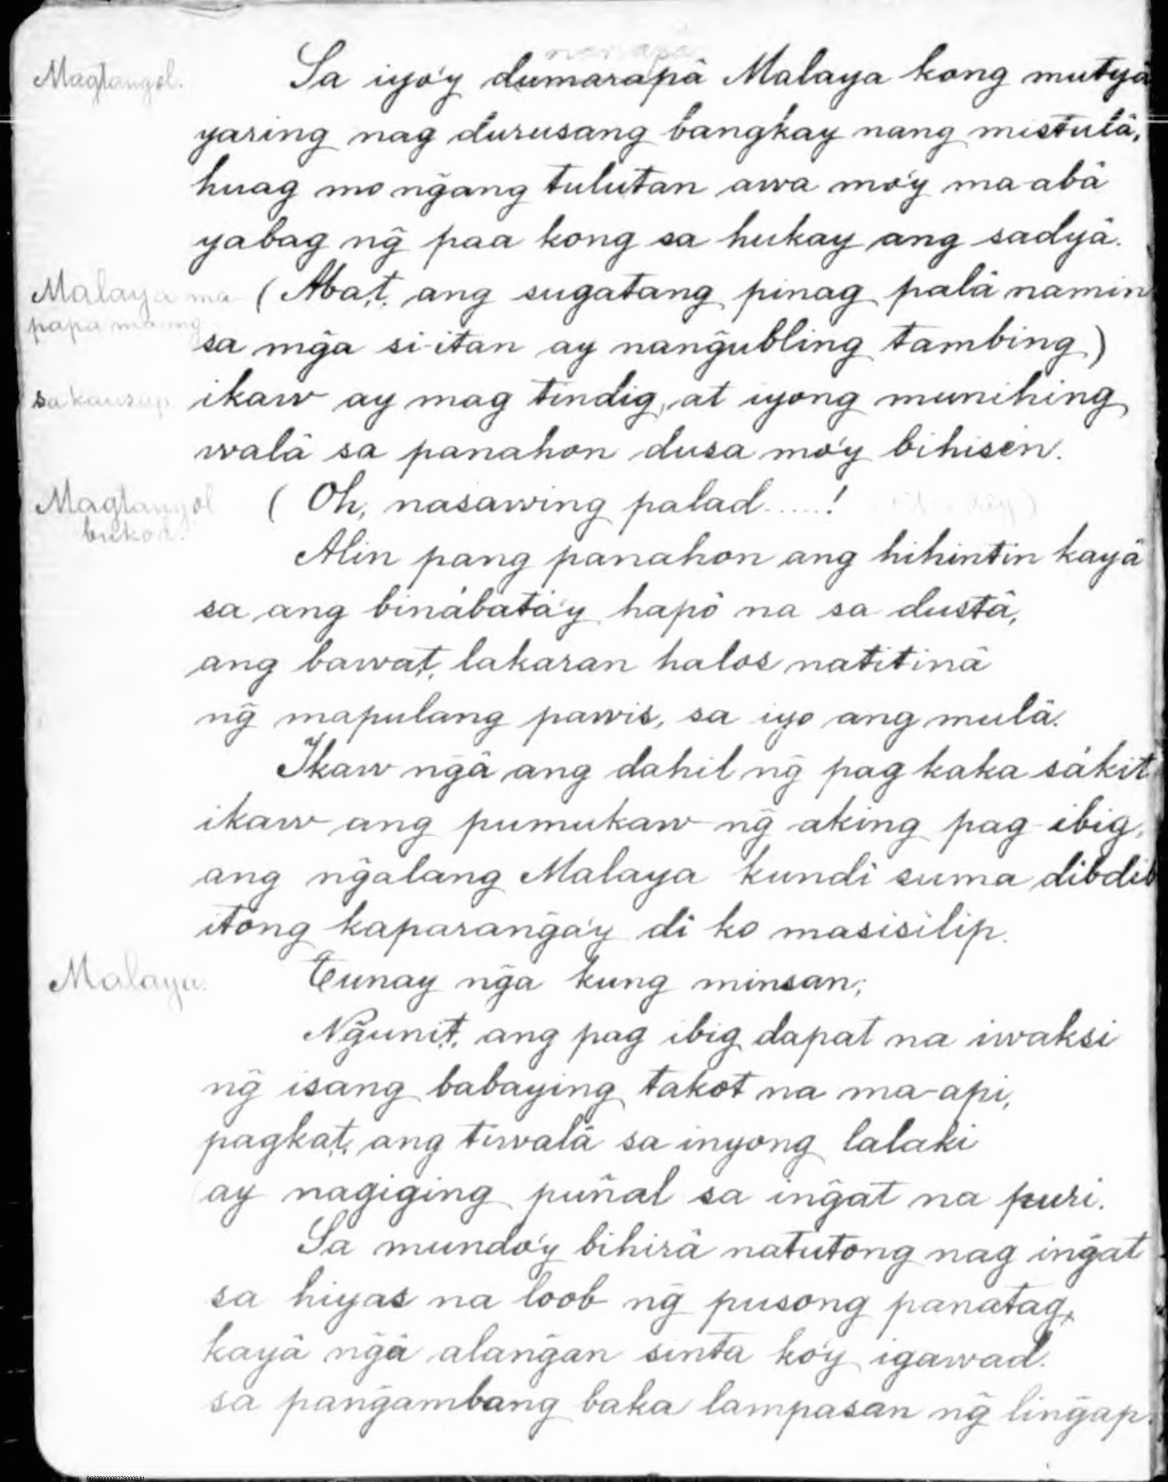 Magtangol. Sa iyo'y dumarapâ Malaya kong mutyâ
yaring nag durusang bangkay nang mistulâ,
huag mo ng̃ang tulutan awa mo'y ma-abâ
yabag ng̃ paa kong sa hukay ang sadyâ.
Malaya ma (Abat, ang sugatang pinag palâ namin
papa
sa mg̃a si-itan ay nang̃ubling tambing)
ikaw ay mag tindig, at iyong munihing
walâ sa panahon dusa mo'y bihisin.
Magtangol (Oh, nasawing palad.....!
bukod.
Alin pang panahon ang hihintin kayâ
sa ang binábatá'y hapô na sa dustâ,
ang bawat, lakaran halos natitinâ
ng̃ mapulang pawis, sa iyo ang mulâ.
Ikaw ng̃â ang dahil ng̃ pag kaka sákit
ikaw ang pumukaw ng̃ aking pag-ibig,
ang ng̃alang Malaya kundî suma dibdib
itong kaparang̃a'y di ko masisilip.
Malaya. Tunay ng̃a kung minsan;
Ng̃unit, ang pag ibig dapat na iwaksi
ng̃ isang babaying takot na ma-api,
pagkat, ang tiwalâ sa inyong lalaki
ay nagiging puñal sa ing̃at na puri.
Sa mundo'y bihirâ natutong nag ing̃at
sa hiyas na loob ng̃ pusong panatag,
kayâ ng̃â alang̃an sinta ko'y igawad.
sa pang̃ambang baka lampasan ng̃ ling̃ap.